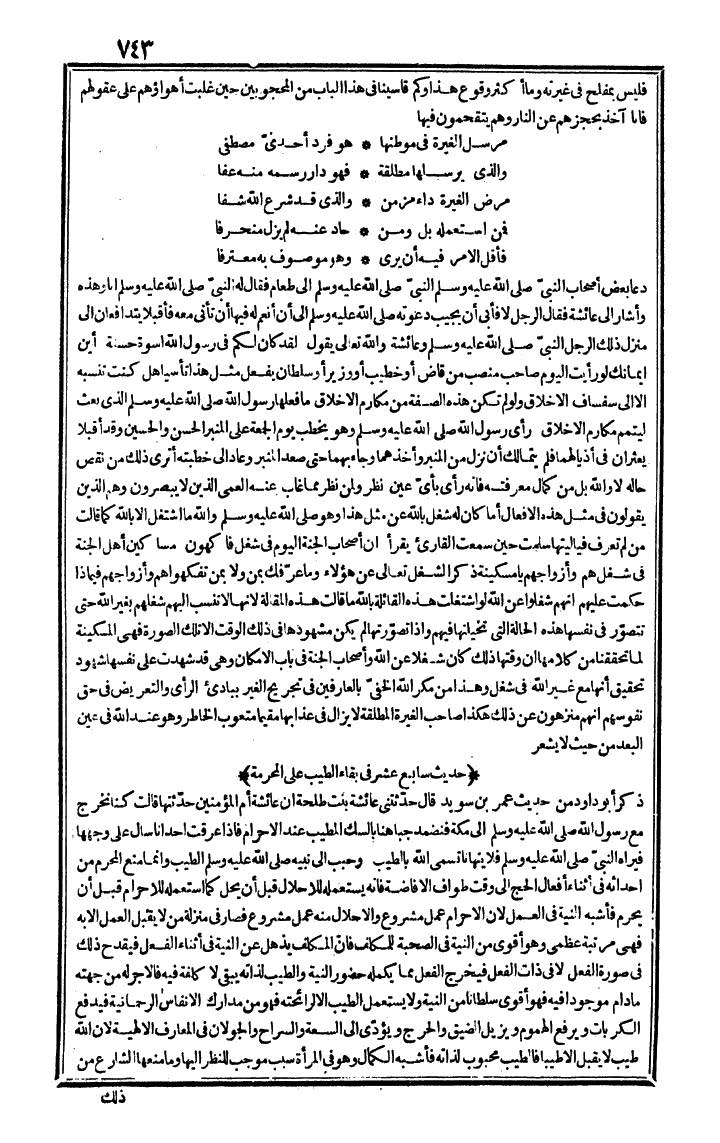 ٧٤٣
فليس بمفلح فى غيرته وما أكثر وقوع هذا وكم قاسينا فى هذا الباب من المحجوبين حين غلبت أهواؤهم على عقولهم
فانا آخذ بحجزهم عن النار وهم يتقحمون فيها
مرسل الغيرة فى موطنها * هو فرد أحدىّ مصطفى
والذى يرسلها مطلقة * فهو دار رسمه منه عفا
مرض الغيرة داء مزمن * والذى قد شرع الله شفا
فمن استعمله بل ومن * حاد عنه لم يزل منحرفا
فأقل الامر فيه أن يرى * وهو موصوف به معترفا
دعا بعض أصحاب النبىّ صلى الله عليه وسلم النبىّ صلى الله عليه وسلم الى طعام فقال له النبىّ صلى الله عليه وسلم انا وهذه
وأشار الى عائشة فقال الرجل لا فأبى أن يجيب دعوته صلى الله عليه وسلم الى أن أنعم له فيها أن تأتى معه فأقبلا يتدافعان الى
منزل ذلك الرجل النبىّ صلى الله عليه وسلم وعائشة والله تعالى يقول لقد كان لكم فى رسول الله اسوة حسنة أين
ايمانك لو رأيت اليوم صاحب منصب من قاض أو خطيب أو وزير أو سلطان يفعل مثل هذا تأسيا هل كنت تنسبه
الا الى سفساف الاخلاق ولو لم تكن هذه الصفة من مكارم الاخلاق ما فعلها رسول الله صلى الله عليه وسلم الذى بعث
ليتمم مكارم الاخلاق رأى رسول الله صلى الله عليه وسلم وهو يخطب يوم الجمعة على المنبر الحسن والحسين وقد أقبلا
يعثران فى أذيالهما فلم يتمالك أن نزل من المنبر وأخذهما وجاء بهما حتى صعد المنبر وعاد الى خطبته أترى ذلك من نقص
حاله لا والله بل من كمال معرفته فانه رأى بأىّ عين نظر ولمن نظر مما غاب عنه العمى الذين لا يبصرون وهم الذين
يقولون فى مثل هذه الافعال أما كان له شغل بالله عن مثل هذا وهو صلى الله عليه وسلم والله ما اشتغل الا بالله كما قالت
من لم تعرف فياليتها سلمت حين سمعت القارئ يقرأ ان أصحاب الجنة اليوم فى شغل فاكهون مساكين أهل الجنة
فى شغل هم وأزواجهم يا مسكينة ذكر الشغل تعالى عن هؤلاء وما عرّفك بمن ولا بمن تفكهوا هم وأزواجهم فبماذا
حكمت عليهم انهم شغلوا عن الله لو اشتغلت هذه القائلة بالله ما قالت هذه المقالة لانها لا تنسب اليهم شغلهم بغير الله حتى
تتصوّر فى نفسها هذه الحالة التى تخيلتها فيهم واذا تصوّرتها لم يكن مشهودها فى ذلك الوقت الا تلك الصورة فهى المسكينة
لما تحققنا من كلامها ان وقتها ذلك كان شغلا عن الله وأصحاب الجنة فى باب الامكان وهى قد شهدت على نفسها شهود
تحقيق أنها مع غير الله فى شغل وهذا من مكر الله الخفىّ بالعارفين فى تجريح الغير ببادئ الرأى والتعريض فى حق
نفوسهم انهم منزهون عن ذلك هكذا صاحب الغيرة المطلقة لا يزال فى عذابها مقيما متعوب الخاطر وهو عند الله فى عين
البعد من حيث لا يشعر
﴿حديث سابع عشر فى بقاء الطيب على المحرمة﴾
ذكر أبو داود من حديث عمر بن سويد قال حدّثتنى عائشة بنت طلحة ان عائشة أم المؤمنين حدّثتها قالت كنا نخرج
مع رسول الله صلى الله عليه وسلم الى مكة فنضمد جباهنا بالسك المطيب عند الاحرام فاذا عرقت احدانا سال على وجهها
فيراه النبىّ صلى الله عليه وسلم فلا ينهانا تسمى الله بالطيب وحبب الى نبيه صلى الله عليه وسلم الطيب وانما منع المحرم من
احداثه فى أثناء أفعال الحج الى وقت طواف الافاضة فانه يستعمله للاحلال قبل أن يحل كما استعمله للاحرام قبل أن
يحرم فأشبه النية فى العمل لان الاحرام عمل مشروع والاحلال منه عمل مشروع فصار فى منزلة من لا يقبل العمل الا به
فهى مرتبة عظمى وهو أقوى من النية فى الصحبة للمكلف فانّ المكلف يذهل عن النية فى أثناء الفعل فيقدح ذلك
فى صورة الفعل لا فى ذات الفعل فيخرج الفعل مما يكمله حضور النية والطيب لذاته يبقى لا كلفة فيه فالاجر له من جهته
مادام موجودا فيه فهو أقوى سلطانا من النية ولا يستعمل الطيب الا لرائحته فهو من مدارك الانفاس الرحمانية فيدفع
الكربات ويرفع الهموم ويزيل الضيق والحرج ويؤدّى الى السعة والسراح والجولان فى المعارف الالهية لان الله
طيب لا يقبل الا طيبا فالطيب محبوب لذاته فأشبه الكمال وهو فى المرأة سبب موجب للنظر اليها وما منعها الشارع من
ذلك